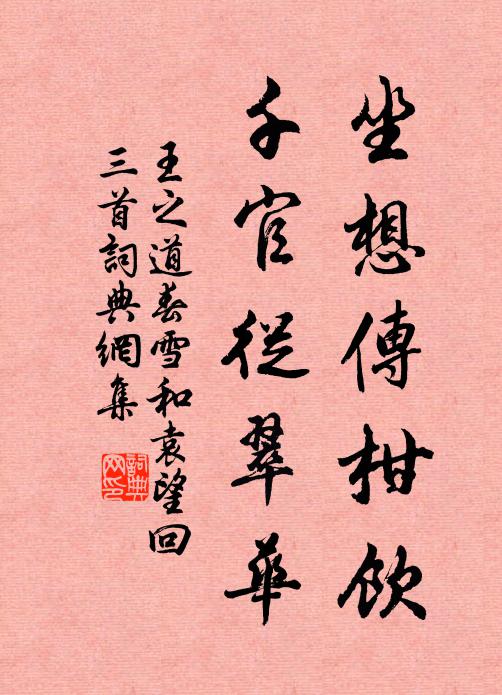 坐想傳柑飲
千官從翠華
王之道春雪和袁望回
三首詞典網集
詞典網印